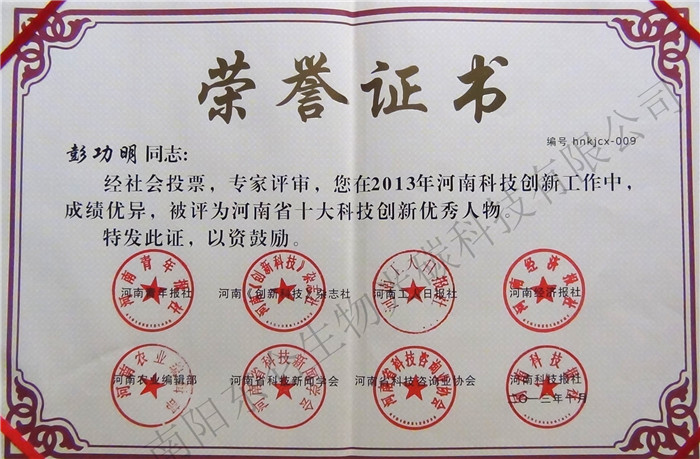 荣誉证书
编号 hnkjcx-009
彭功明 同志:
经社会投票，专家评审，您在2013年河南科技创新工作中，
成绩优异，被评为河南省十大科技创新优秀人物。
特发此证，以资鼓励。
河南青年报社 河南《创新科技》杂志社 河南工人日报社 河南经济报社
河南农业编辑部 河南省科技新闻学会 河南省科技咨询业协会 河南科技报社
二〇一三年十月